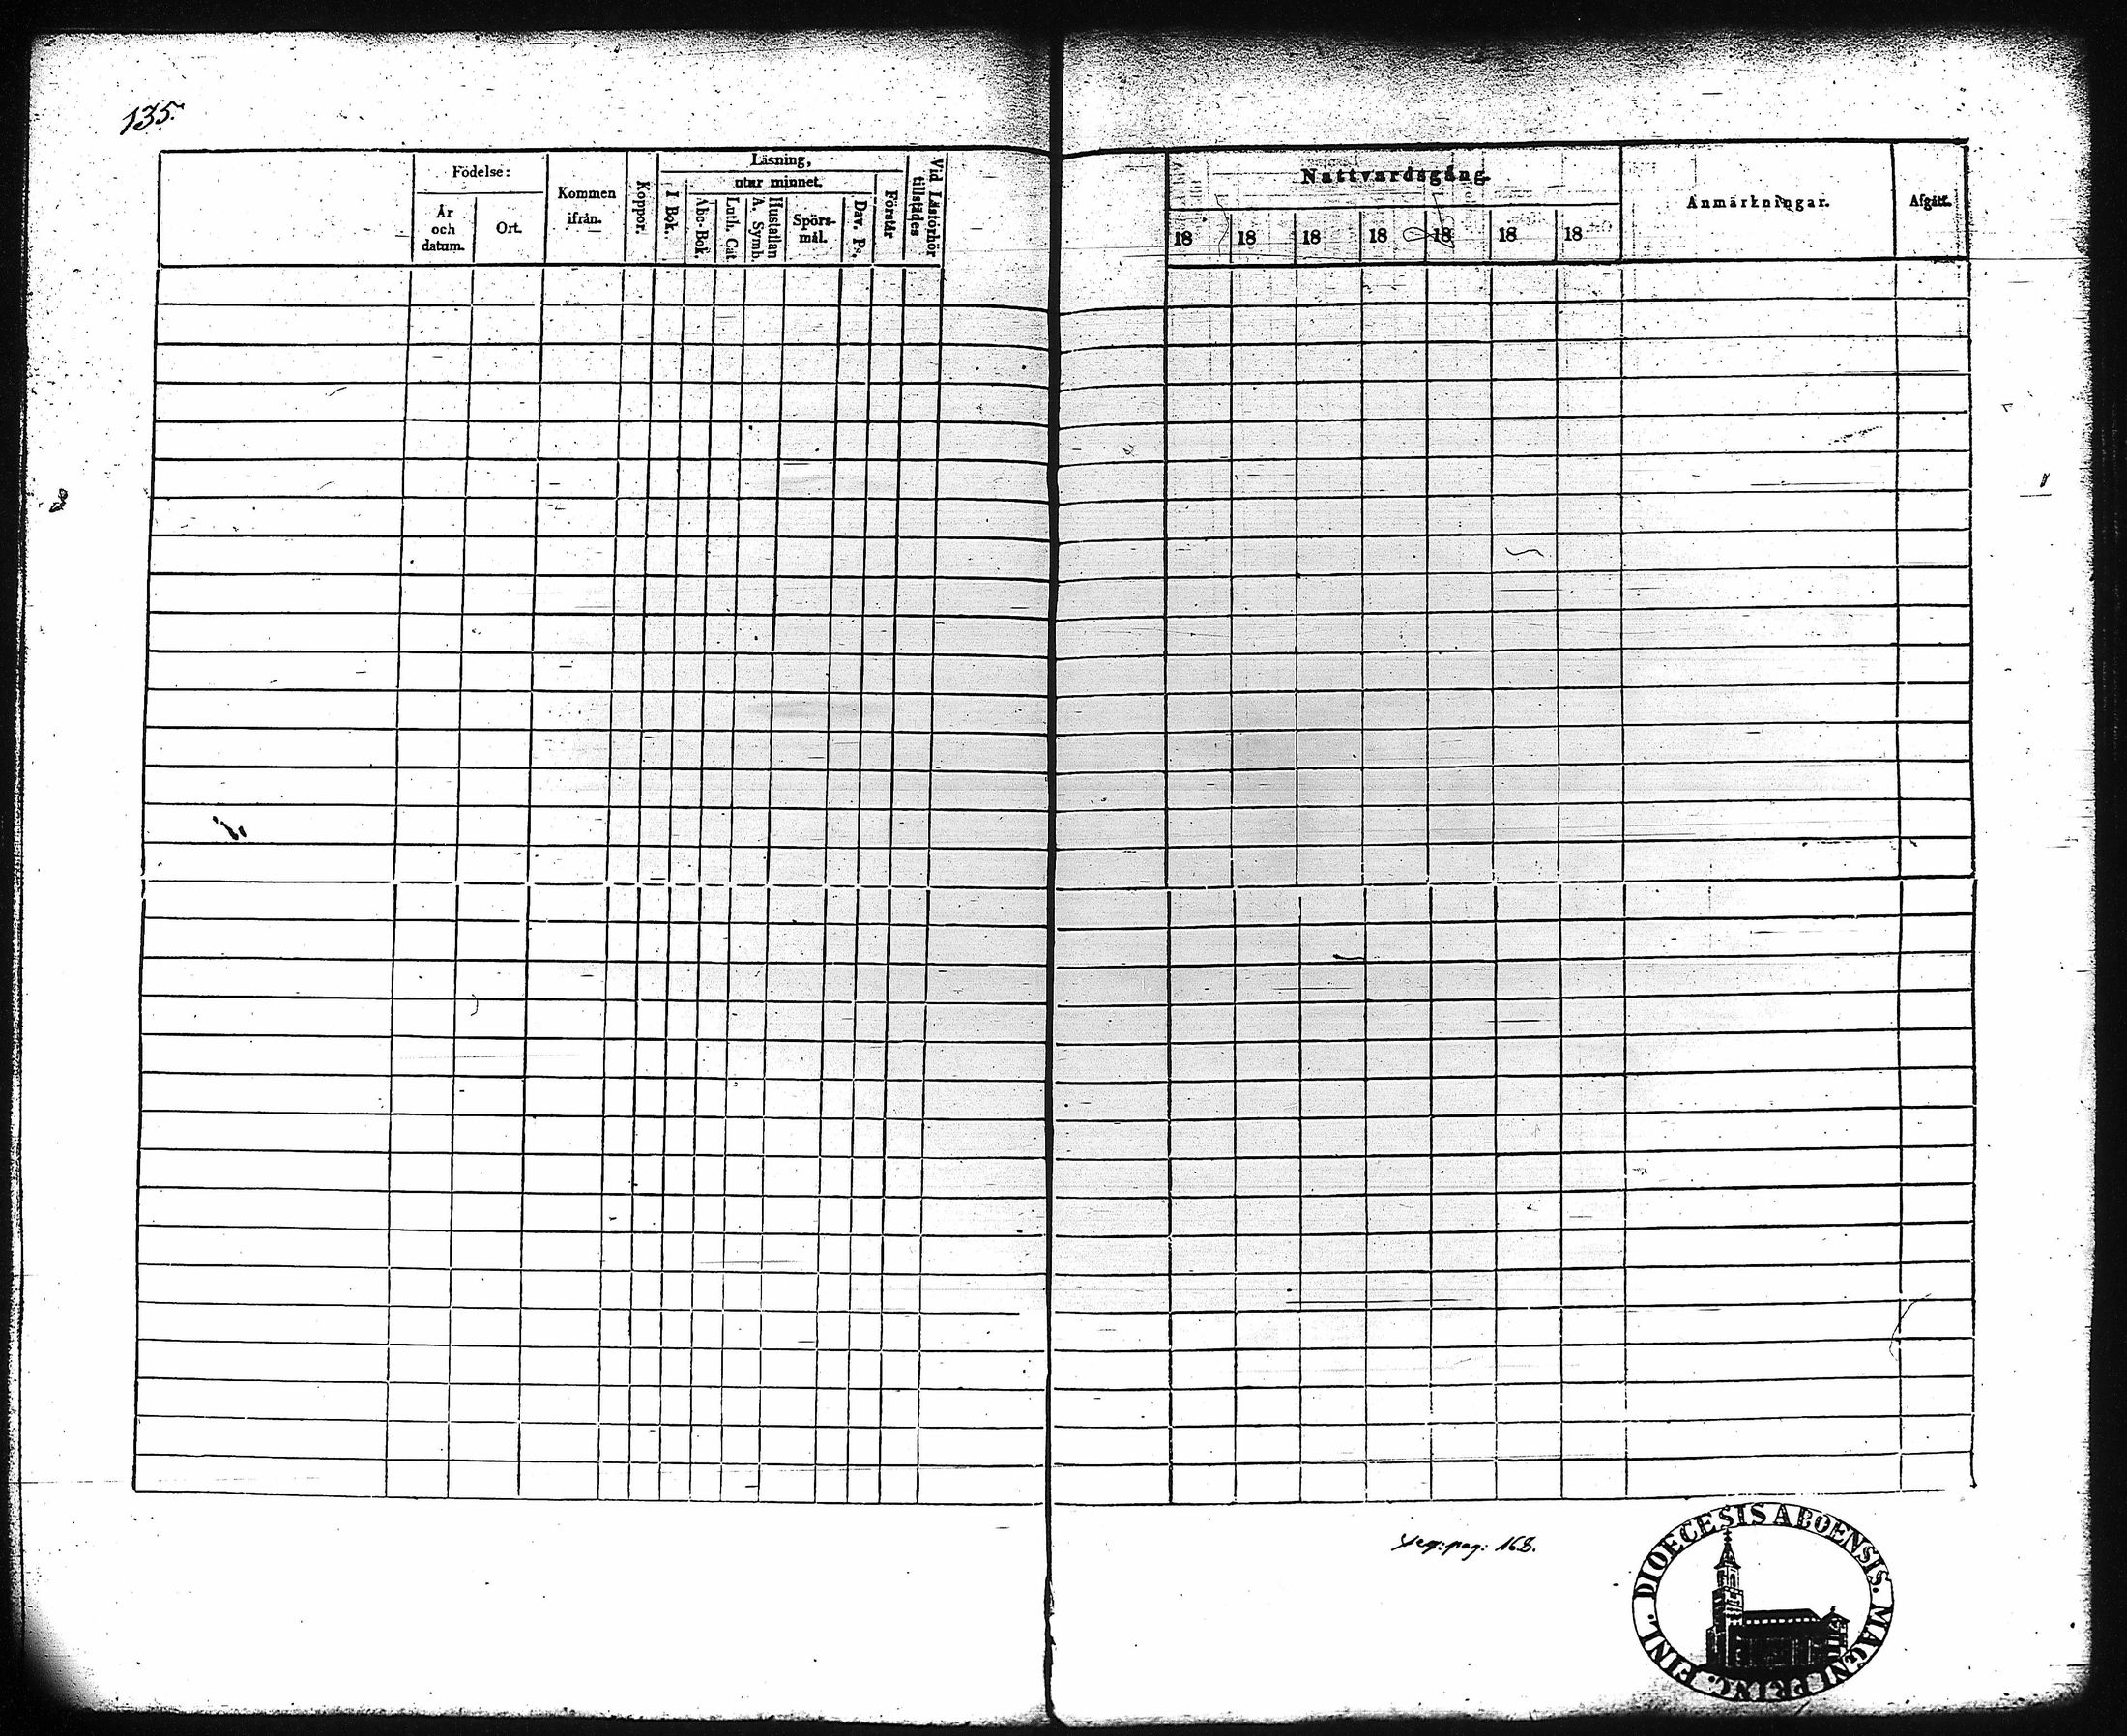 135.
Födelse:
År och datum.
Ort.
Kommen ifrån.
Koppor.
Läsning,
I Bok.
utur minnet.
Abc-Bok.
Luth. Cat.
Hustaflan A. Symb.
Spörs-mål.
Dav. Ps.
Förstår
Vid Läsförhör tillstädes
Nattvardsgång.
18 18 18 18 18 18 18
Anmärkningar.
Afgått.
Seqv: pag: 168.
DIOECESIS ABOENSIS. MAGNI PRINC. FINL.